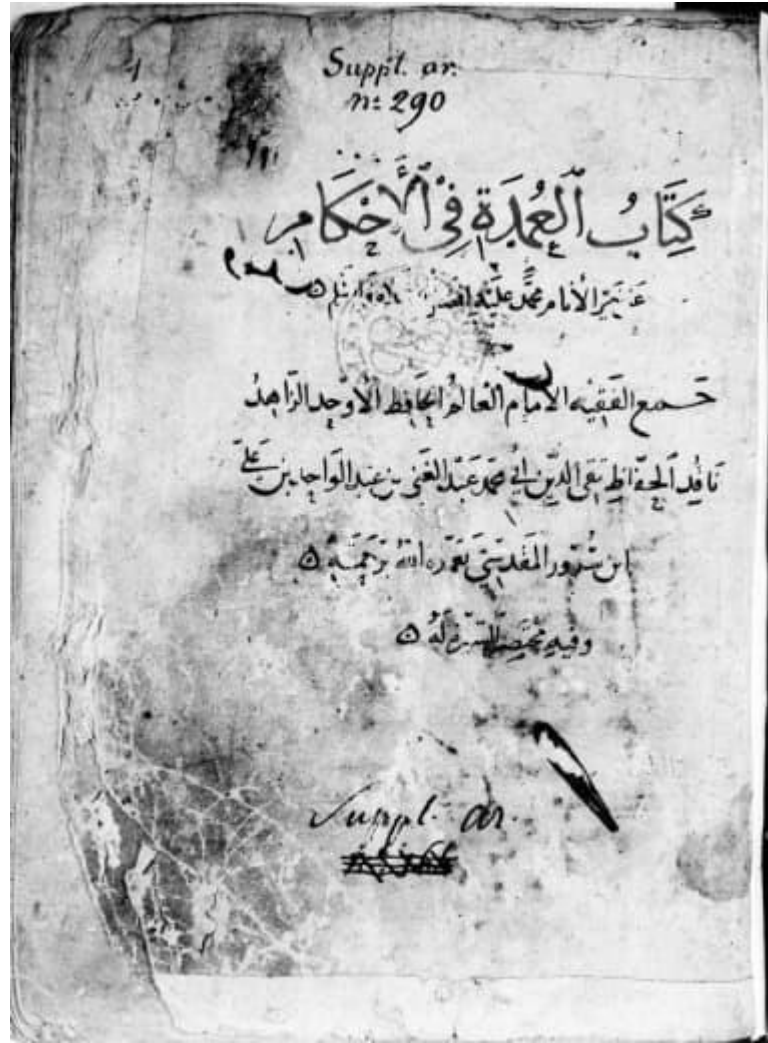 Suppl. ar.
n: 290
كِتَابُ ٱلْعُمْدَةِ فِي ٱلْأَحْكَامِ
عن خير الأنام محمد عليه افضل وسلم
جمع الفقيه الامام العالم الحافظ الاوحد الزاهد
ناقد الحفاظ تقي الدين ابي محمد عبد الغني بن عبد الواحد بن علي
ابن سرور المقدسي تغمده الله برحمته
وفيه مختصر السيرة له
Suppl. ar.